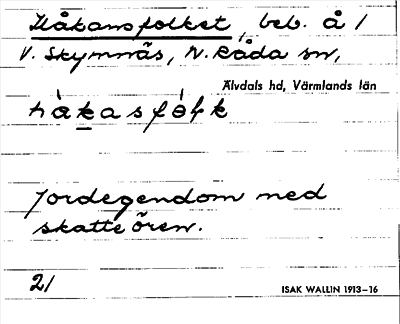 Håkansfolket, beb. å /
V. Skymnäs, N. Råda sn,
Älvdals hd, Värmlands län
hàkasfólk
Jordegendom med
skatteören.
21
ISAK WALLIN 1913–16